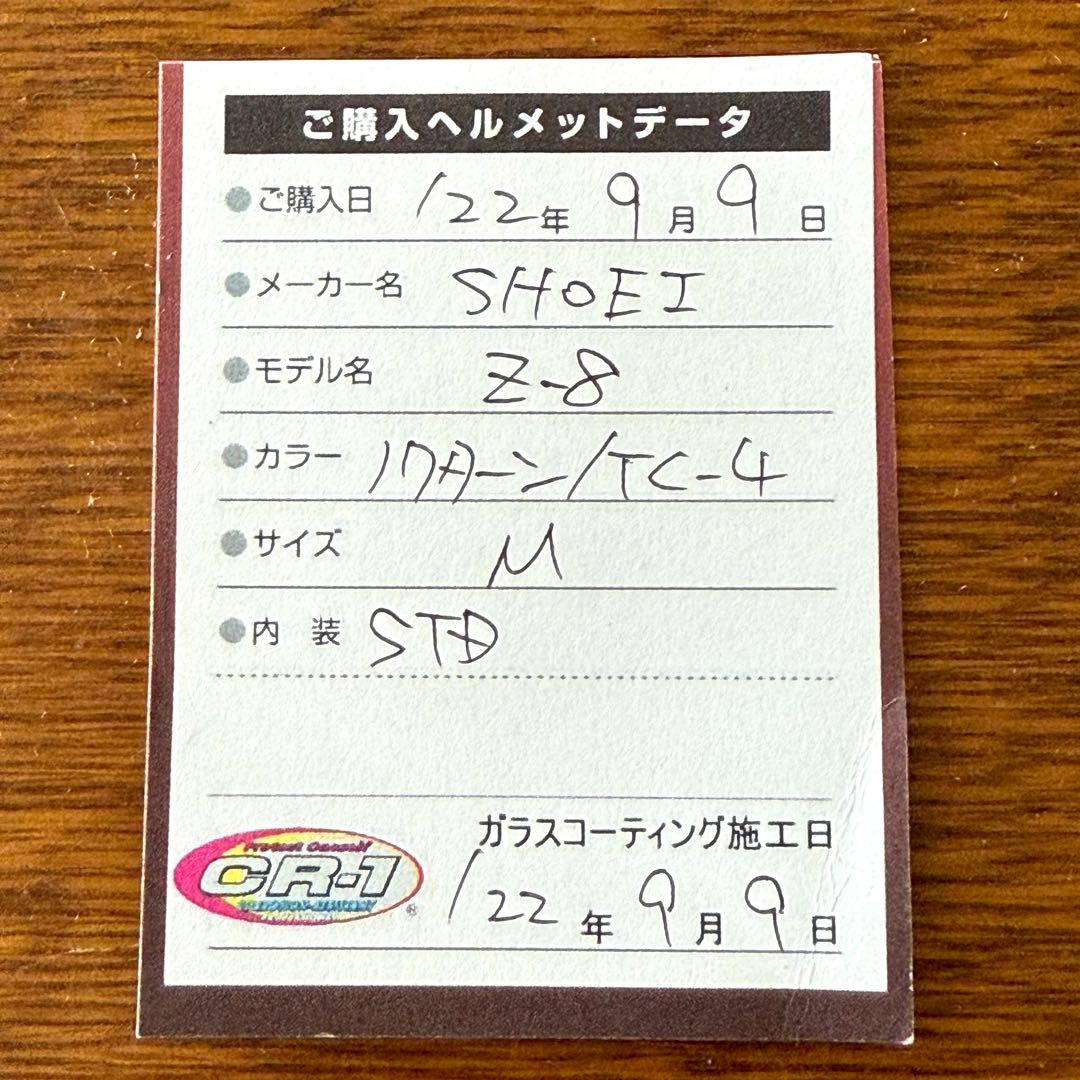 ご購入ヘルメットデータ
ご購入日 '22年 9月 9日
メーカー名 SHOEI
モデル名 Z-8
カラー /TC-4
サイズ M
内 装 STD
ガラスコーティング施工日
CR-1 ®
'22年 9月 9日